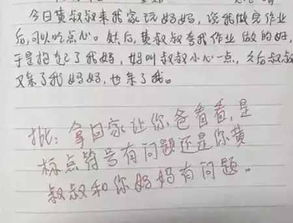 今日黄叔叔来我家访妈妈,说我做完作业
后,可以吃点心。然后,黄叔叔夸我作业做的好,
于是抱起了我妈,妈叫叔叔小心一点,之后叔叔
又亲了我妈妈,也亲了我。
批:拿回家让你爸看看,是
标点符号有问题还是你黄
叔叔和你妈妈有问题。